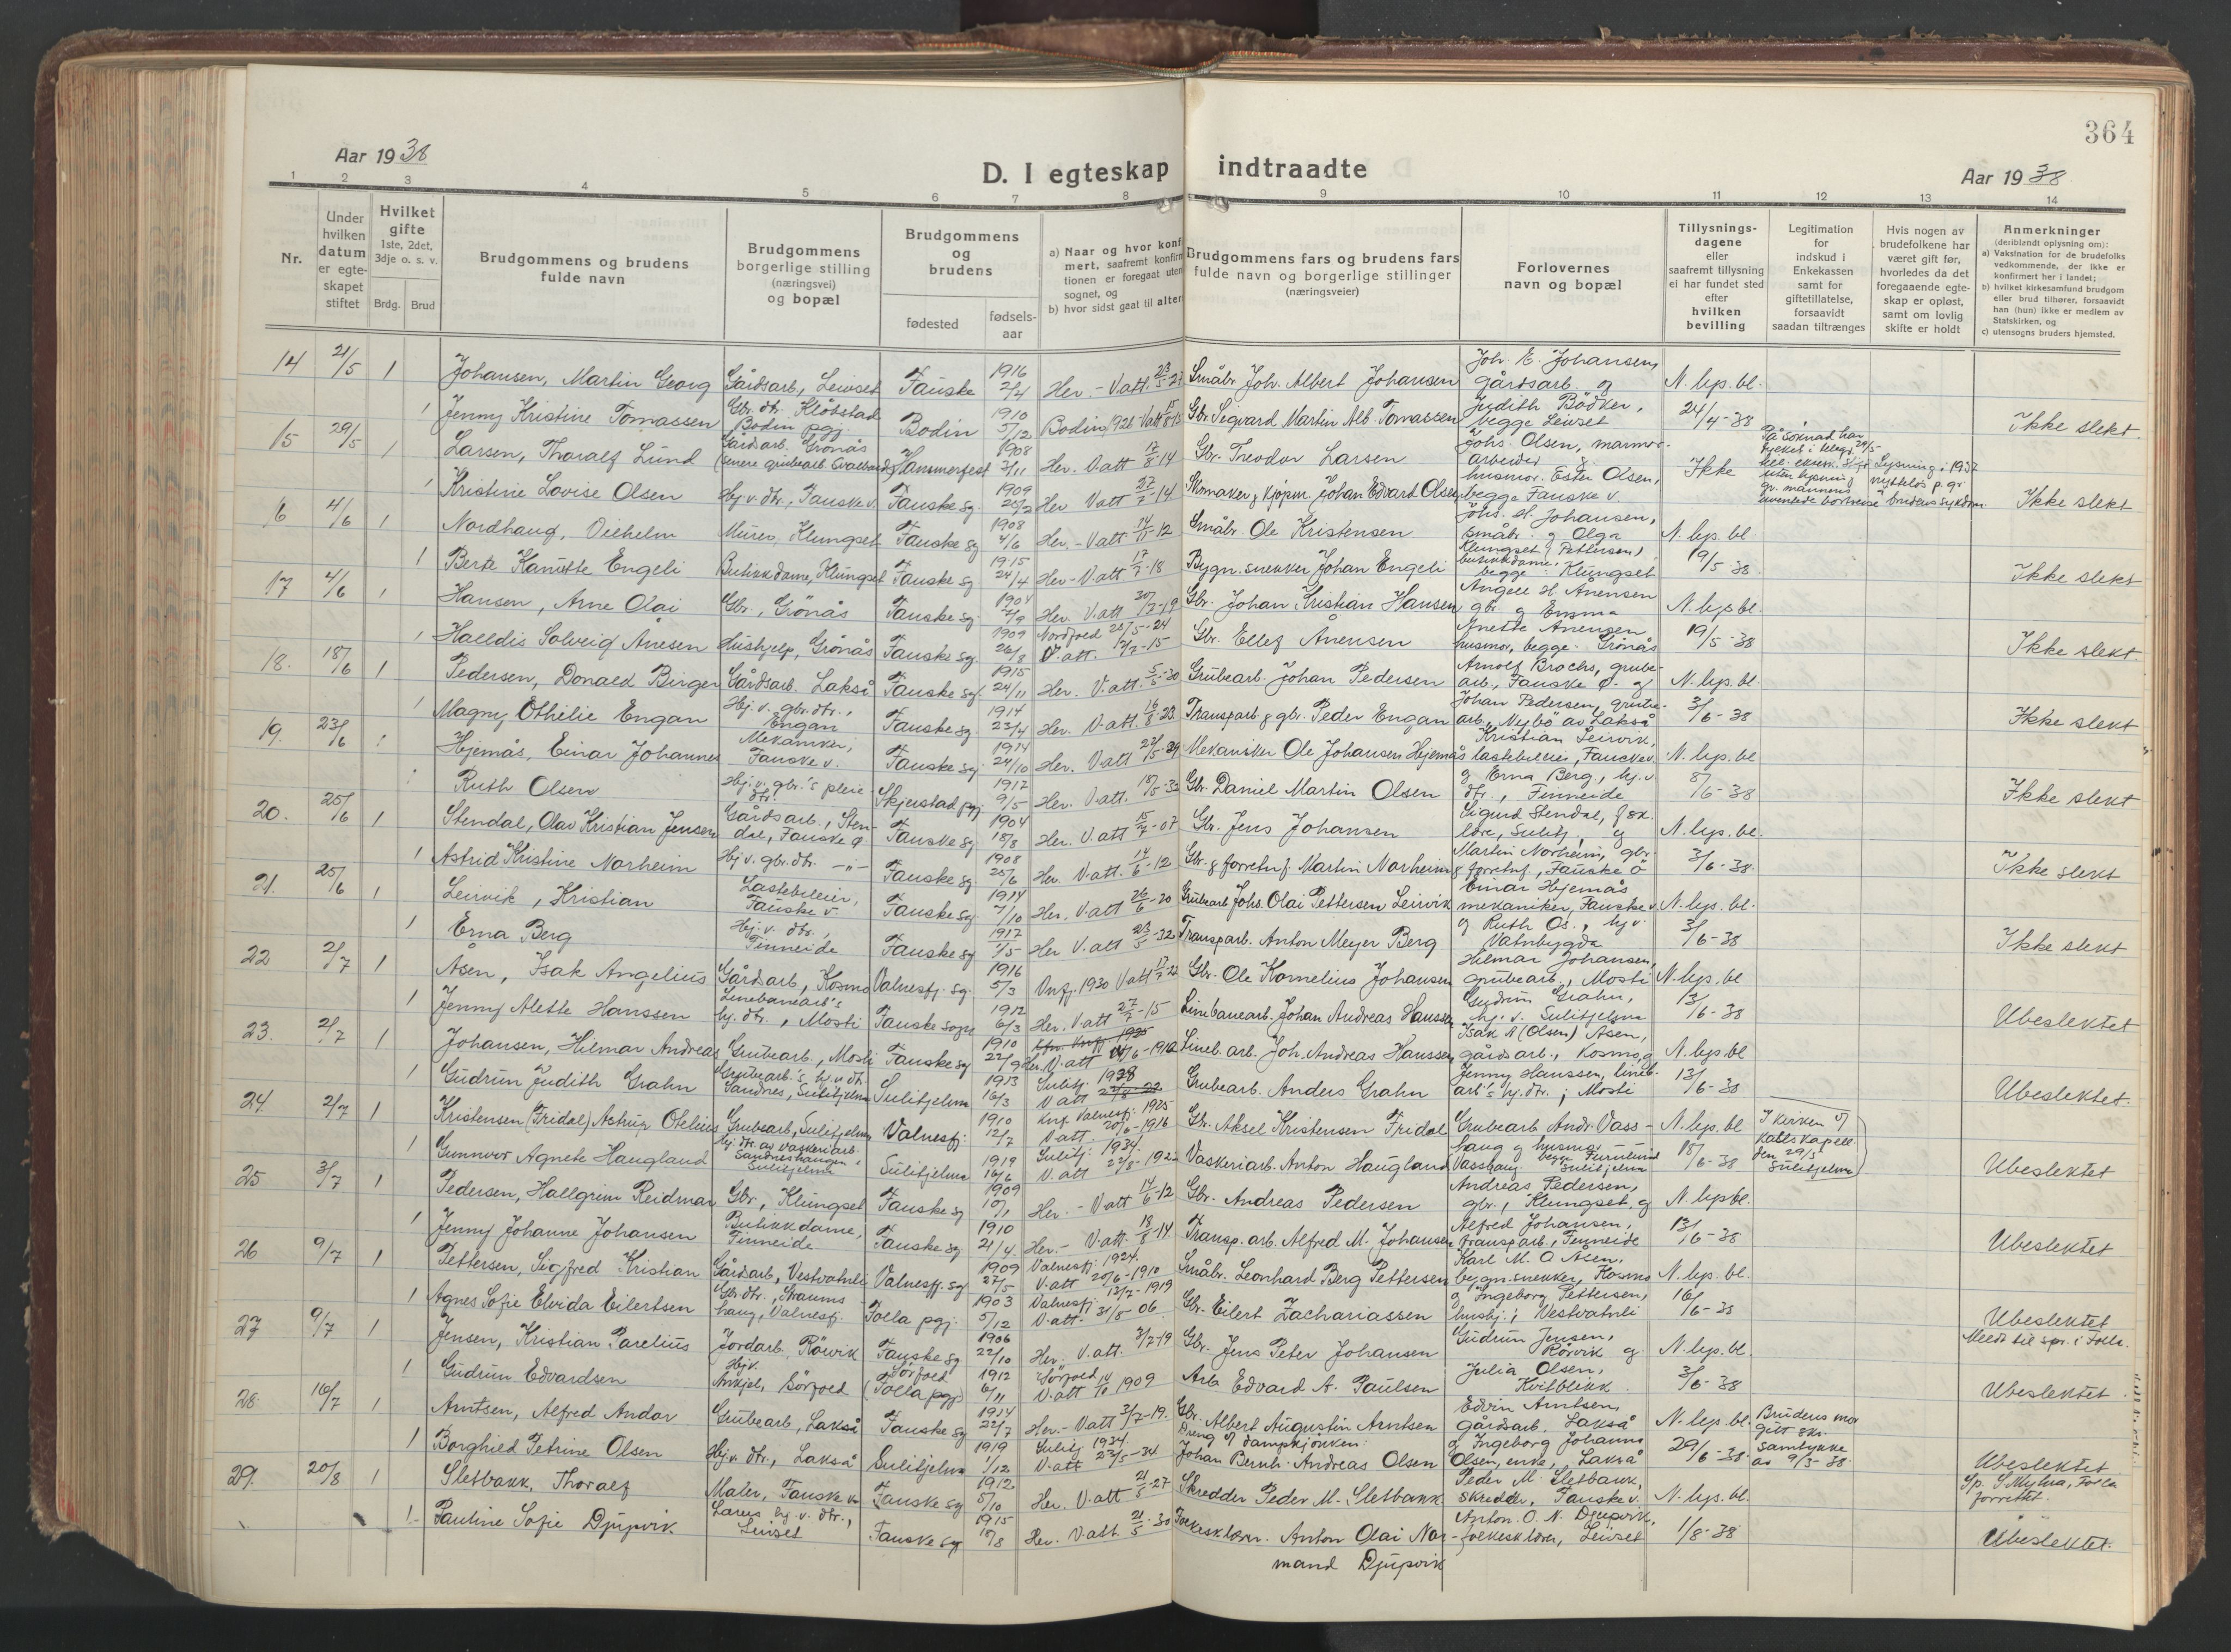 364
Aar 1938
D. I egteskap indtraadte
Aar 1938
1 2 3 4 5 6 7 8 9 10 11 12 13 14
Nr.
Under hvilken datum er egteskapet stiftet
Hvilket gifte 1ste, 2det, 3dje o. s. v.
Brdg. Brud
Brudgommens og brudens fulde navn
Brudgommens borgerlige stilling (næringsvei) og bopæl
Brudgommens og brudens
fødested
fødsels-aar
a) Naar og hvor konf
mert, saafremt konfirm
tionen er foregaat uten
sognet, og
b) hvor sidst gaat til alter
Brudgommens fars og brudens fars
fulde navn og borgerlige stillinger
(næringsveier)
Forlovernes
navn og bopæl
Tillysnings-
dagene
eller
saafremt tillysning
ei har fundet sted
efter
hvilken
bevilling
Legitimation
for
indskud i
Enkekassen
samt for
giftetillatelse,
forsaavidt
saadan tiltrænges
Hvis nogen av
brudefolkene har
været gift før,
hvorledes da det
foregaaende egte-
skap er opløst,
samt om lovlig
skifte er holdt
Anmerkninger
(deriblandt oplysning om):
a) Vaksination for de brudefolks
vedkommende, der ikke er
konfirmert her i landet;
b) hvilket kirkesamfund brudgom
eller brud tilhører, forsaavidt
han (hun) ikke er medlem av
Statskirken, og
c) utensogns bruders hjemsted.
14 21/5 1 Johansen, Martin Georg Gårdsarb., Leivset Fauske 1916 2/4 Her.- V.att. Småbr. Joh. Albert Johansen Joh. E. Johansen, gårdsarb. og N. lys. bl.
1 Jenny Kristine Tomassen Gbr. dtr. Klöbstad Bodin pgj. Bodin 1910 5/12 Bodin 1926 Gbr. Sigvard Martin Alb. Tomassen Judith Bödker, begge Leivset 24/4-38 Ikke slekt.
15 29/5 1 Larsen, Thoralf Lund Gårdsarb. Grönås (senere grubearb. Svalbard) Hammerfest 1908 2/11 Her. V.att 17/8-14 Gbr. Theodor Larsen Johs. Olsen, marmor-arbeider Ikke
1 Kristine Lovise Olsen Hj. v. dtr., Fauske v. Fauske sg. 1909 20/2 Her V.att 27/7-14 Skomaker & kjöpm. Johan Edvard Olsen husmor Ester Olsen, begge Fauske v. Ikke slekt
16 4/6 1 Nordhaug, Vilhelm Murer, Klungset Fauske sg 1908 4/6 Her.- V.att 14/-12 Småbr. Ole Kristensen Johs. H. Johansen, småbr. og Olga N. lys. bl.
1 Berte Kanutte Engeli Butikkdame, Klungset Fauske sg 1915 24/4 Her- V.att 17/7-18 Bygn.snekker Johan Engeli Klungset (Pettersen), butikkdame, begge Klungset 19/5 38 Ikke slekt
17 4/6 1 Hansen, Arne Olai Gbr., Grönås Fauske sg. 1904 Her. V.att 30/-19 Gbr. Johan Kristian Hansen Angell H. Anensen gbr. og Emma N. lys bl.
1 Halldis Solveig Ånesen Hushjelp, Grönås Fauske sg. 1909 26/8 Nordfold 25/5-24 V.att. -15 Gbr. Ellef Ånensen Anette Anensen husmor, begge Grönås 19/5-38 Ikke slekt.
18. 18/6 1 Pedersen, Donald Birger Gårdsarb. Lakså Fauske sg. 1915 24/11 Her. V.att. -30 Grubearb. Johan Pedersen Arnolf Brochs, grube-arb., Fauske ö. og N. lys. bl.
1 Magny Othilie Engan Hj. v. gbr. dtr., Engan Fauske sg. 1914 23/4 Her. V.att. 16/8-23 Transparb. & gbr. Peder Engan Johan Pedersen, grube-arb., Nybö av Lakså 3/6-38 Ikke slekt
19. 23/6 1 Hjemås, Einar Johannes Mekaniker, Fauske v. Fauske sg. 1914 24/10 Her. V.att 27/5-29 Mekaniker Ole Johansen Hjemås Kristian Leirvik, lastebileier, Fauske v. N. lys. bl
Ruth Olsen Hj. v. gbr.'s pleie dtr. Skjerstad pgj. 1912 9/5 Her. V.att. 18/5-32 Gbr. Daniel Martin Olsen og Erna Berg, hj. v. dtr., Finneide 8/6-38 Ikke slekt
20. 25/6 1 Stendal, Olav Kristian Jensen Gårdsarb., Stendal, Fauske ö. Fauske sg. 1904 18/8 Her. V.att 15/7-07 Gbr. Jens Johansen Sigurd Stendal, Sulitj., og N. lys. bl.
1 Astrid Kristine Norheim Hj. v. gbr. dtr. -"- Fauske sg 1908 25/6 Her. V.att. 14/6-12 Gbr. & forretnf. Martin Norheim Martin Norheim, gbr. & forretnf., Fauske ö 3/6-38. Ikke slekt
21. 25/6 1 Leirvik, Kristian Lastebileier, Fauske v. Fauske sg. 1914 7/10 Her. V.att 26/6-20 Grubearb Johs. Olai Pettersen Leirvik Einar Hjemås mekaniker, Fauske v. N. lys. bl.
1 Erna Berg Hj. v. dtr., Finneide Fauske sg 1917 1/5 Her V.att 23/5-32 Transparb. Anton Meyer Berg og Ruth Os., hj. v. Vatnbygda 3/6-38 Ikke slekt
22 2/7 1 Åsen, Isak Angelius Gårdsarb, Kosmo Valnesfj. sg. 1916 5/3 Vnfj. 1930 V.att Gbr. Ole Kornelius Johansen Hilmar Johansen, grubearb., Mosti N. lys. bl
1 Jenny Alette Hanssen Linebanearb's hj. dtr., Mosti Fauske sogn 1912 6/3 Her. V.att 27/7-15 Linebanearb. Johan Andreas Hanssen Gudrun Grahn, hj. v. Sulitjelma 13/6-38 Ubeslektet
23. 2/7 1 Johansen, Hilmar Andreas Grubearb., Mosti Fauske sg 1910 22/9 Her. V.att /6-1912 Lineb. arb. Joh. Andreas Hanssen Isak A (Olsen) Åsen, gårdsarb., Kosmo, og N. lys. bl
1 Gudrun Judith Grahn Grubearb.'s hj. v. dtr. Sandnes, Sulitjelma Sulitjelma 1913 16/3 Sulitj. 1928 V.att Grubearb. Anders Grahn Jenny Hanssen, lineb. arb's hj. dtr., Mosti 13/6-38 Ubeslektet.
24. 2/7 1 Kristensen (Fridal) Astrup Otelius Grubearb., Sulitjelma Valnesfj. 1910 12/7 Knf. Valnesfj. 1925 V.att. 20/6-1916 Gbr. Aksel Kristensen Fridal Grubearb Andr. Vass- N. lys. bl I kirken v/
1 Gunnvor Agnete Haugland hj. dtr. av vaskeriarb. Sandneshaugen, Sulitjelma Sulitjelma 1919 16/6 Sulitj. 1934. V.att 22/8-192 Vaskeriarb. Anton Haugland haug og husmor Vasshaug begge Furulund Sulitjelma 18/6-38 den 29/5 Sulitjelma Ubeslektet
25 3/7 1 Pedersen, Hallgrim Reidmar Gbr., Klungset Fauske sg 1909 10/1 Her.- V.att 14/6-12 Gbr. Andreas Pedersen Andreas Pedersen, gbr., Klungset, og N. lys bl.
1 Jenny Johanne Johansen Butikkdame, Finneide Fauske sg 1910 21/4. Her.- V.att. 18/8-14 Transp. arb. Alfred M. Johansen Alfred Johansen, transparb., Finneide 13/6-38 Ubeslektet
26 9/7 1 Pettersen, Sigfred Kristian Gårdsarb, Vestvatnli Valnesfj. sg 1909 27/5 Valnesfj. 1924. V.att 20/6-1910 Småbr. Leonhard Berg Pettersen Karl M. O Åsen, bygn.snekker, Kosmo N. lys. bl.
1 Agnes Sofie Elvida Eilertsen Gbr. dtr., Straumshaug, Valnesfj. Folla pgj. 1903 5/12 Valnesfj. 13/7-1919 V.att. 31/8 06. Gbr. Eilert Zachariassen og Ingeborg Pettersen, hushj., Vestvatnli 16/6-38 Ubeslektet
27 9/7 1 Jensen, Kristian Parelius Jordarb. Rövik Fauske sg 1906 22/10 Her. V.att. 3/7-19 Gbr. Jens Peter Johansen Gudrun Jensen, Rörvik og N. lys. bl. Meldt til spr. i Folla.
1 Gudrun Edvardsen Hj. v. Sörfold Sörfold (Folla pgj) 1912 6/11 Sörfold V.att 1909 Arb. Edvard A. Paulsen Julia Olsen, Kvitblikk 3/6-38 Ubeslektet
28. 16/7 1 Arntsen, Alfred Andor Grubearb., Lakså Fauske sg 1914 22/7 Her.- V.att 3/7-19. Gbr. Albert Augustin Arntsen Edvin Arntsen, gårdsarb. Lakså N. lys. bl. Brudens mor gitt skr.
1 Borghild Petrine Olsen Hj. v. dtr., Lakså Sulitjelma 1919 1/12 Sulitj 1934. V.att 23/5-34 Dreng v/ dampkjökken Johan Bernh. Andreas Olsen og Ingeborg Johanne Olsen, enke, Lakså 29/6-38 samtykke av 9/5-38. Ubeslektet
29. 20/8 1 Sletbakk, Thoralf Maler, Fauske v. Fauske sg 1912 5/10 Her. V.att 21/5-27 Skredder Peder M. Sletbakk Peder M. Sletbakk, skredder, Fauske v. N. lys. bl. Sp. S. Myhra, Folla forrettet.
1 Pauline Sofie Djupvik Lærers hj. v. dtr., Leivset Fauske sg 1915 18/8 Her. V.att. 21/5-30 Folkesklærer. Anton Olai Nor- Anton. O. N. Djupvik, folkesklærer, Leivset 1/8-38 Ubeslektet.
mand Djupvik